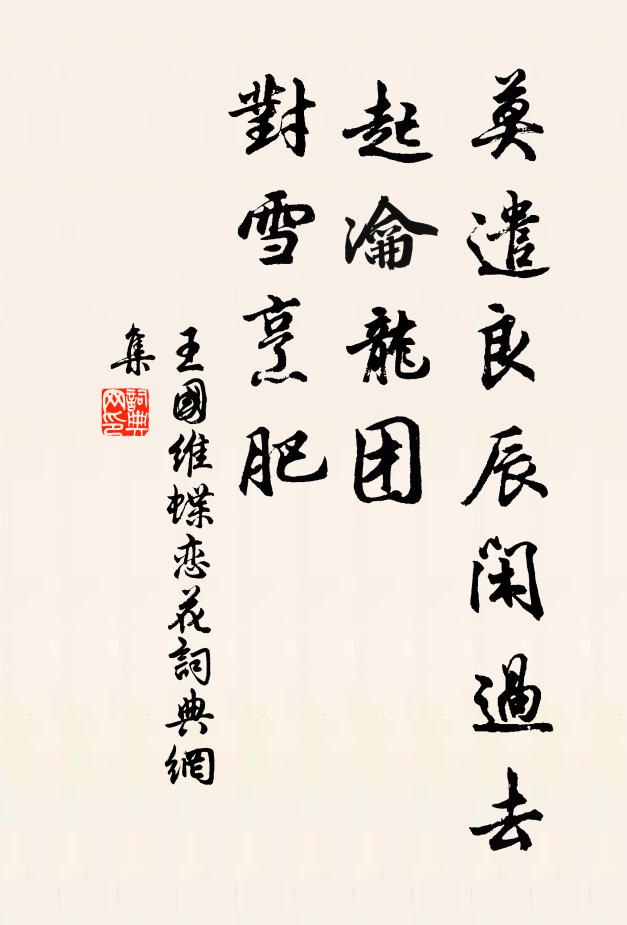 莫遣良辰闲過去
起瀹龍团
對雪烹肥
王國維蝶恋花詞典網
集
詞典
网印